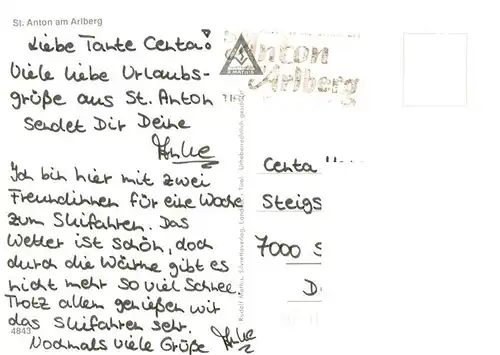 St. Anton am Arlberg
Liebe Tante Centa!
Viele liebe Urlaubs-
grüße aus St. Anton
sendet Dir Deine
Anke
Ich bin hier mit zwei
Freundinnen für eine Woche
zum Skifahren. Das
Wetter ist schön, doch
durch die Wärme gibt es
nicht mehr so viel Schnee.
Trotz allem genießen wir
das Skifahren sehr.
Nochmals viele Grüße Anke
4843
Anton
Arlberg
Centa
Steigs
7000 S
D